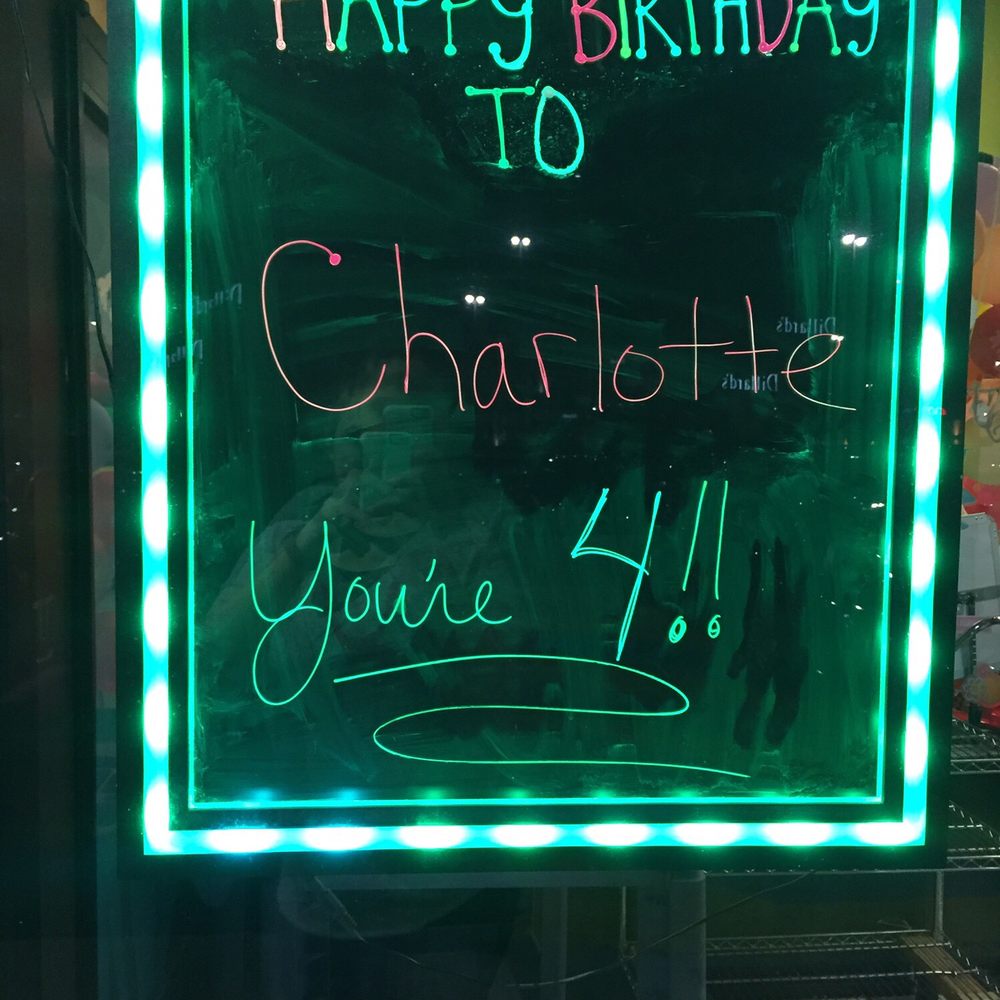 HAPPY BIRTHDAY
TO
Charlotte
Dillard's
Dillard's
Dillard's
You're 4!!